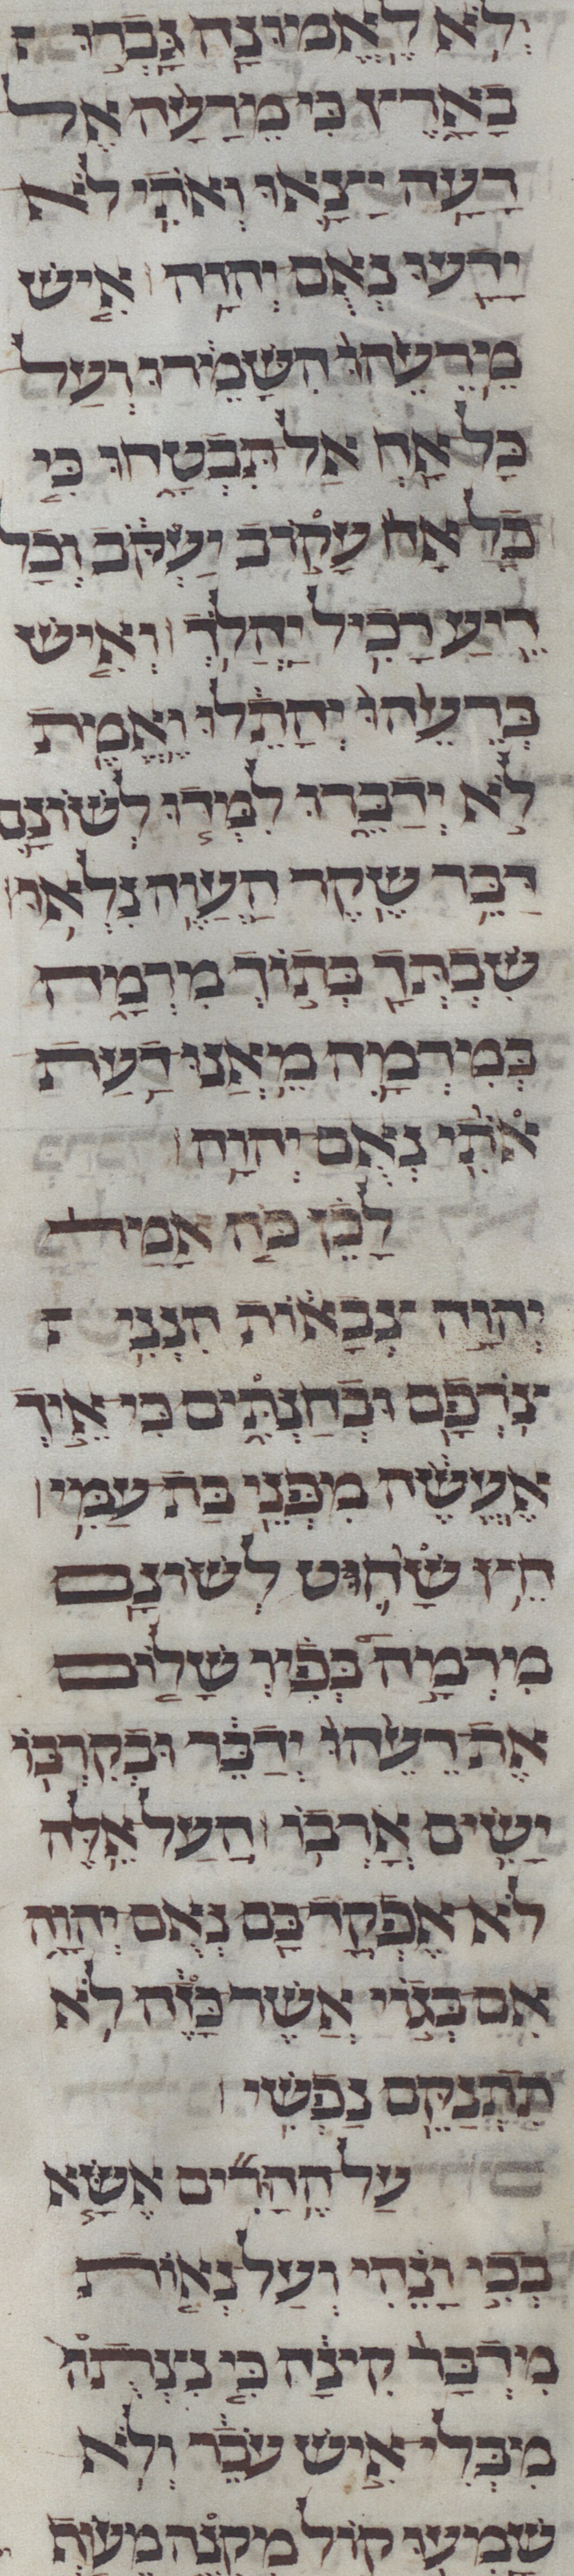 לֹא לֶאֱמוּנָה גָּבְרוּ
בָאָרֶץ כִּי מֵרָעָה אֶל
רָעָה יָצָאוּ וְאֹתִי לֹא
יָדָעוּ נְאֻם יְהוָה אִישׁ
מֵרֵעֵהוּ הִשָּׁמֵרוּ וְעַל
כָּל אָח אַל תִּבְטָחוּ כִּי
כָל אָח עָקוֹב יַעְקֹב וְכָל
רֵיעַ רָכִיל יַהֲלֹךְ וְאִישׁ
בְּרֵעֵהוּ יְהָתֵלּוּ וֶאֱמֶת
לֹא יְדַבֵּרוּ לִמְּדוּ לְשׁוֹנָם
דַּבֵּר שֶׁקֶר הַעֲוֵה נִלְאוּ
שִׁבְתְּךָ בְּתוֹךְ מִרְמָה
בְּמִרְמָה מֵאֲנוּ דַעַת
אוֹתִי נְאֻם יְהוָה
לָכֵן כֹּה אָמַר
יְהוָה צְבָאוֹת הִנְנִי
צוֹרְפָם וּבְחַנְתִּים כִּי אֵיךְ
אֶעֱשֶׂה מִפְּנֵי בַּת עַמִּי
חֵץ שָׁחוּט לְשׁוֹנָם
מִרְמָה בְּפִיו שָׁלוֹם
אֶת רֵעֵהוּ יְדַבֵּר וּבְקִרְבּוֹ
יָשִׂים אָרְבּוֹ הַעַל אֵלֶּה
לֹא אֶפְקָד בָּם נְאֻם יְהוָה
אִם בְּגוֹי אֲשֶׁר כָּזֶה לֹא
תִתְנַקֵּם נַפְשִׁי
עַל הֶהָרִים אֶשָּׂא
בְכִי וָנֶהִי וְעַל נְאוֹת
מִדְבָּר קִינָה כִּי נִצְּתוּ
מִבְּלִי אִישׁ עֹבֵר וְלֹא
שָׁמְעוּ קוֹל מִקְנֶה מֵעוֹף